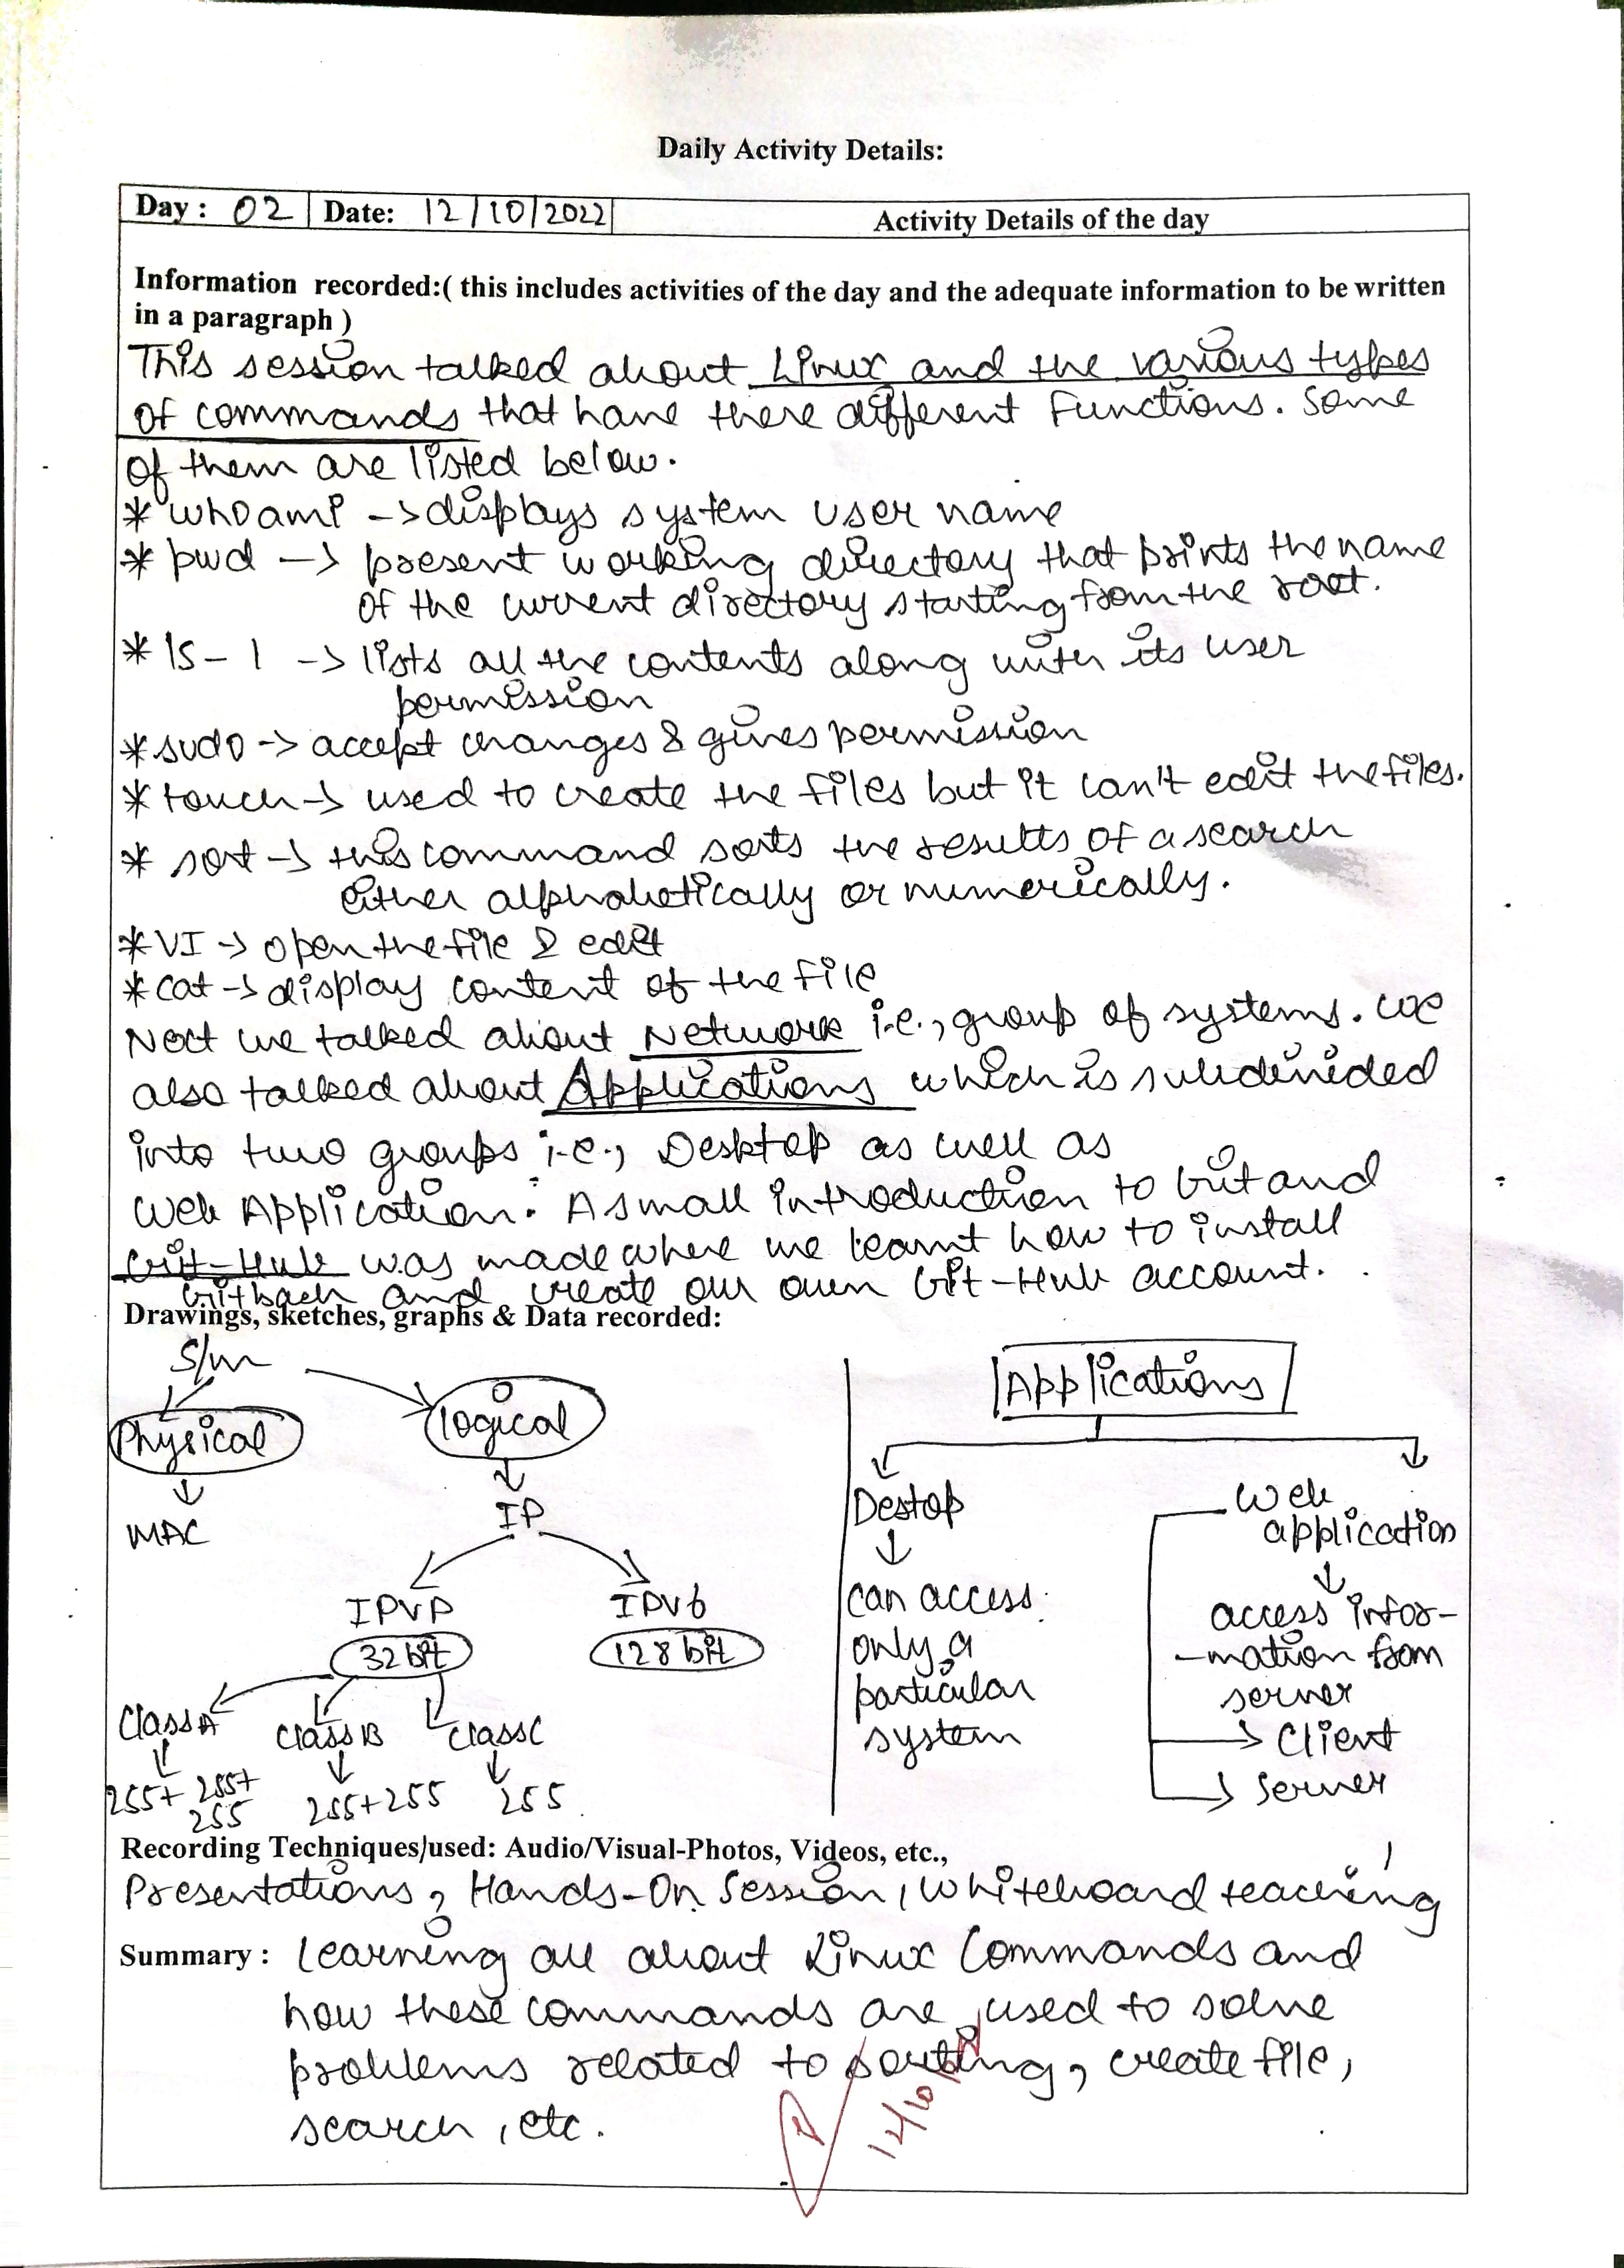 Daily Activity Details:
Day : 02 Date: 12/10/2022 Activity Details of the day
Information recorded:( this includes activities of the day and the adequate information to be written
in a paragraph )
This session talked about Linux and the various types
of commands that have there different Functions. Some
of them are listed below.
* whoami -> displays system user name
* pwd -> present working directory that prints the name
of the current directory starting from the root.
* ls - l -> lists all the contents along with its user
permission
* sudo -> accept changes & gives permission
* touch -> used to create the files but it can't edit the files.
* sort -> this command sorts the results of a search
either alphabetically or numerically.
* VI -> open the file & edit
* cat -> display content of the file
Next we talked about Network i.e., group of systems. We
also talked about Applications which is subdivided
into two groups i.e., Desktop as well as
Web Application. A small introduction to Git and
Git-Hub was made where we learnt how to install
Gitbash and create our own Git-Hub account.
Drawings, sketches, graphs & Data recorded:
S/m
Physical
logical
MAC
IP
IPVP
IPV6
32 bit
128 bit
Class A
Class B
Class C
255+ 255+
255
255+255
255
Applications
Destop
Web
application
can access
only a
particular
system
access infor-
-mation from
server
-> Client
-> Server
Recording Techniques/used: Audio/Visual-Photos, Videos, etc.,
Presentations, Hands-On Session, Whiteboard teaching
Summary : Learning all about Linux Commands and
how these commands are used to solve
problems related to sorting, create file,
search, etc.